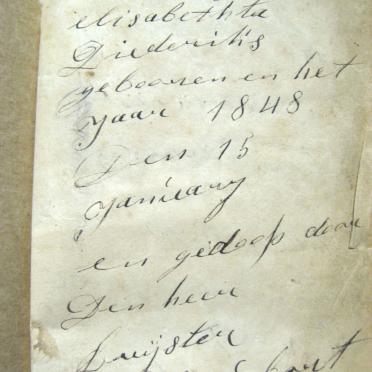 elisabethta
Diederik's
gebooren en het
yaar 1848
Den 15
january
en gedoop door
Den heer